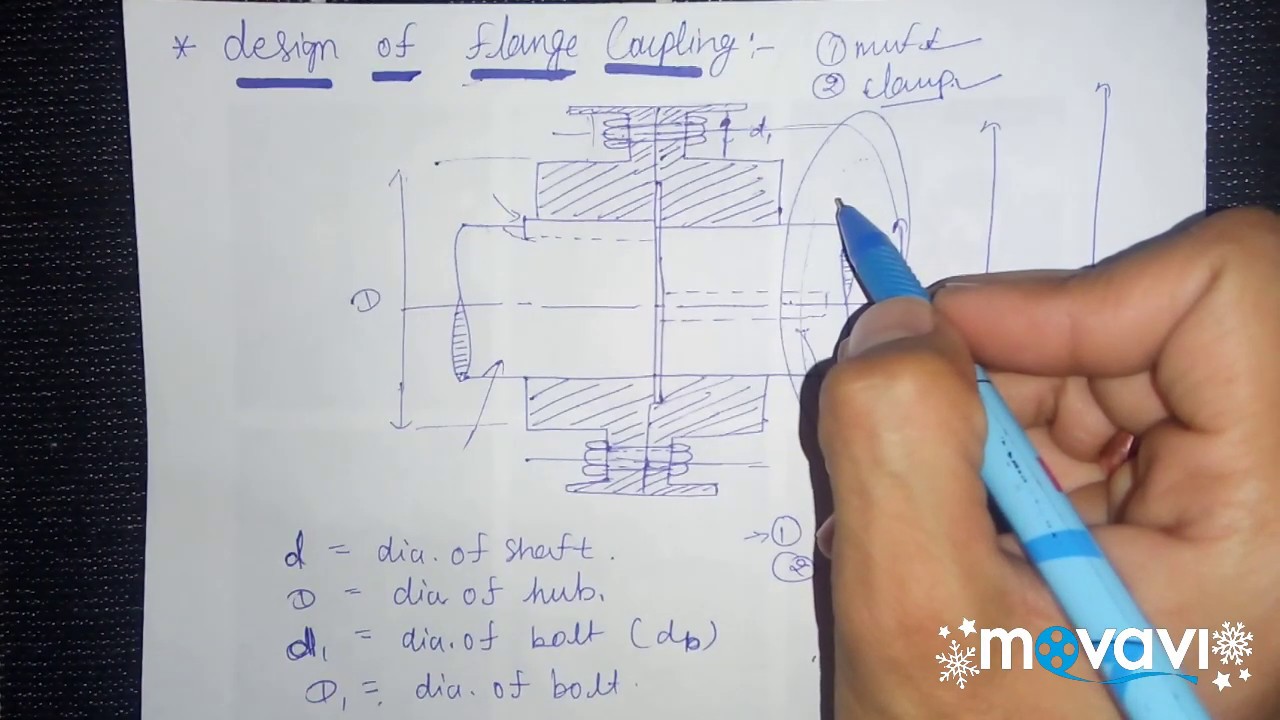 * design of flange Coupling :-
① muff
② clamp
d₁
D
d = dia. of shaft.
D = dia of hub.
d₁ = dia. of bolt (db)
D₁ = dia. of bolt.
→ ①
②
movavi